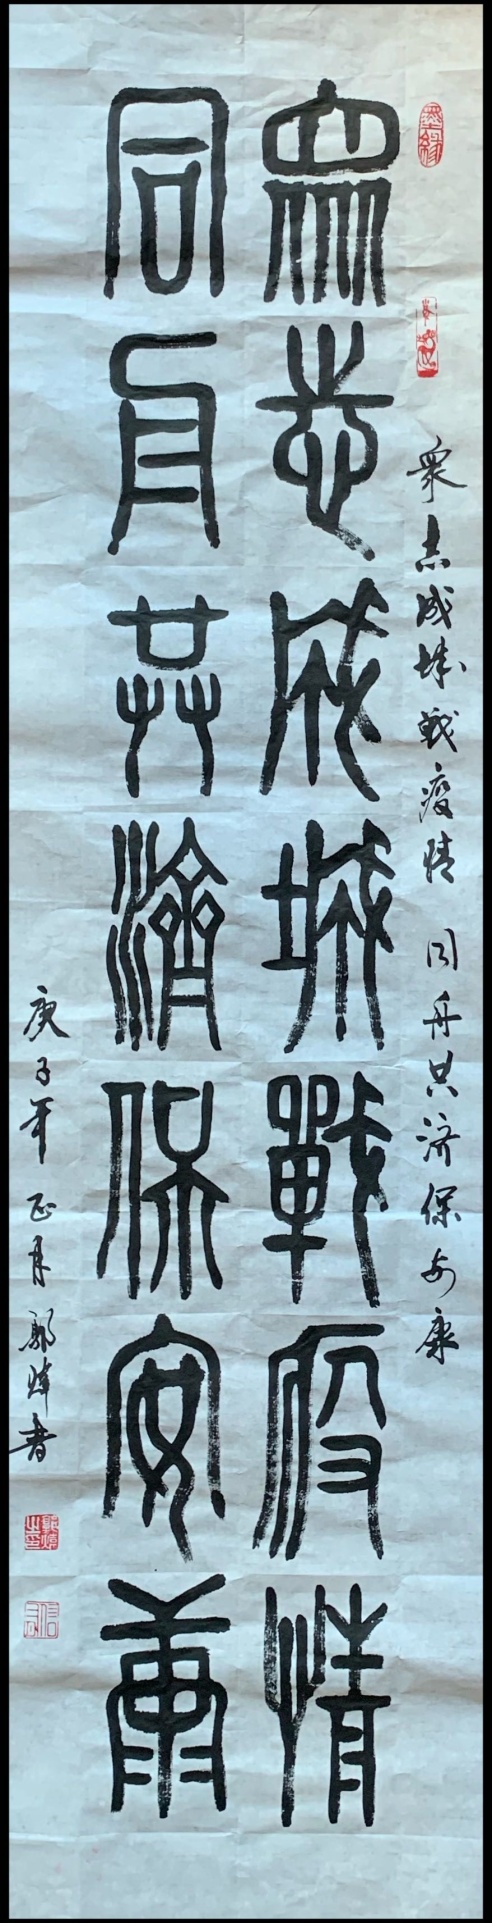 眾志成城戰疫情 同舟共济保安康
眾志成城戰疫情
同舟共濟保安康
庚子年正月郭煒書
墨緣